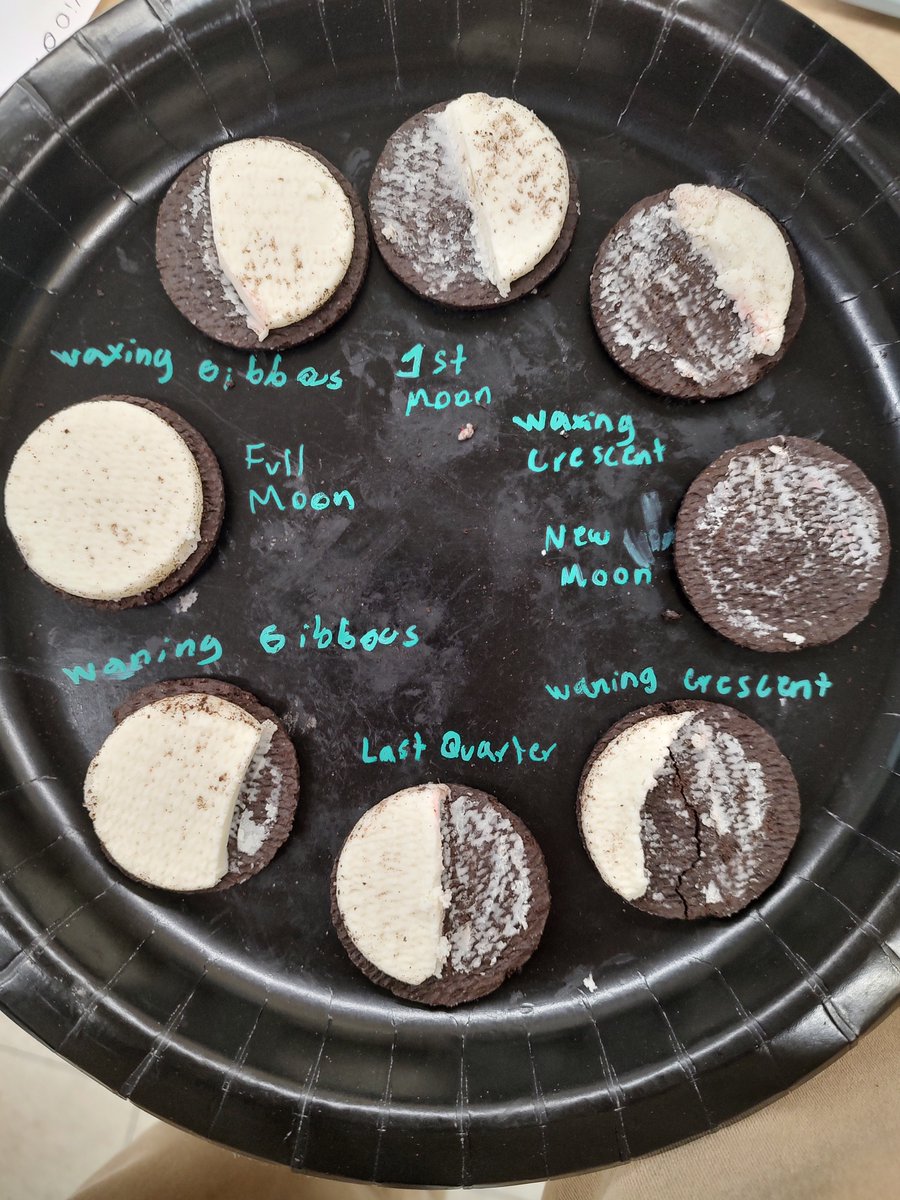 waxing Gibbous
1st
Moon
waxing
crescent
Full
Moon
New
Moon
waning Gibbous
waning crescent
Last Quarter